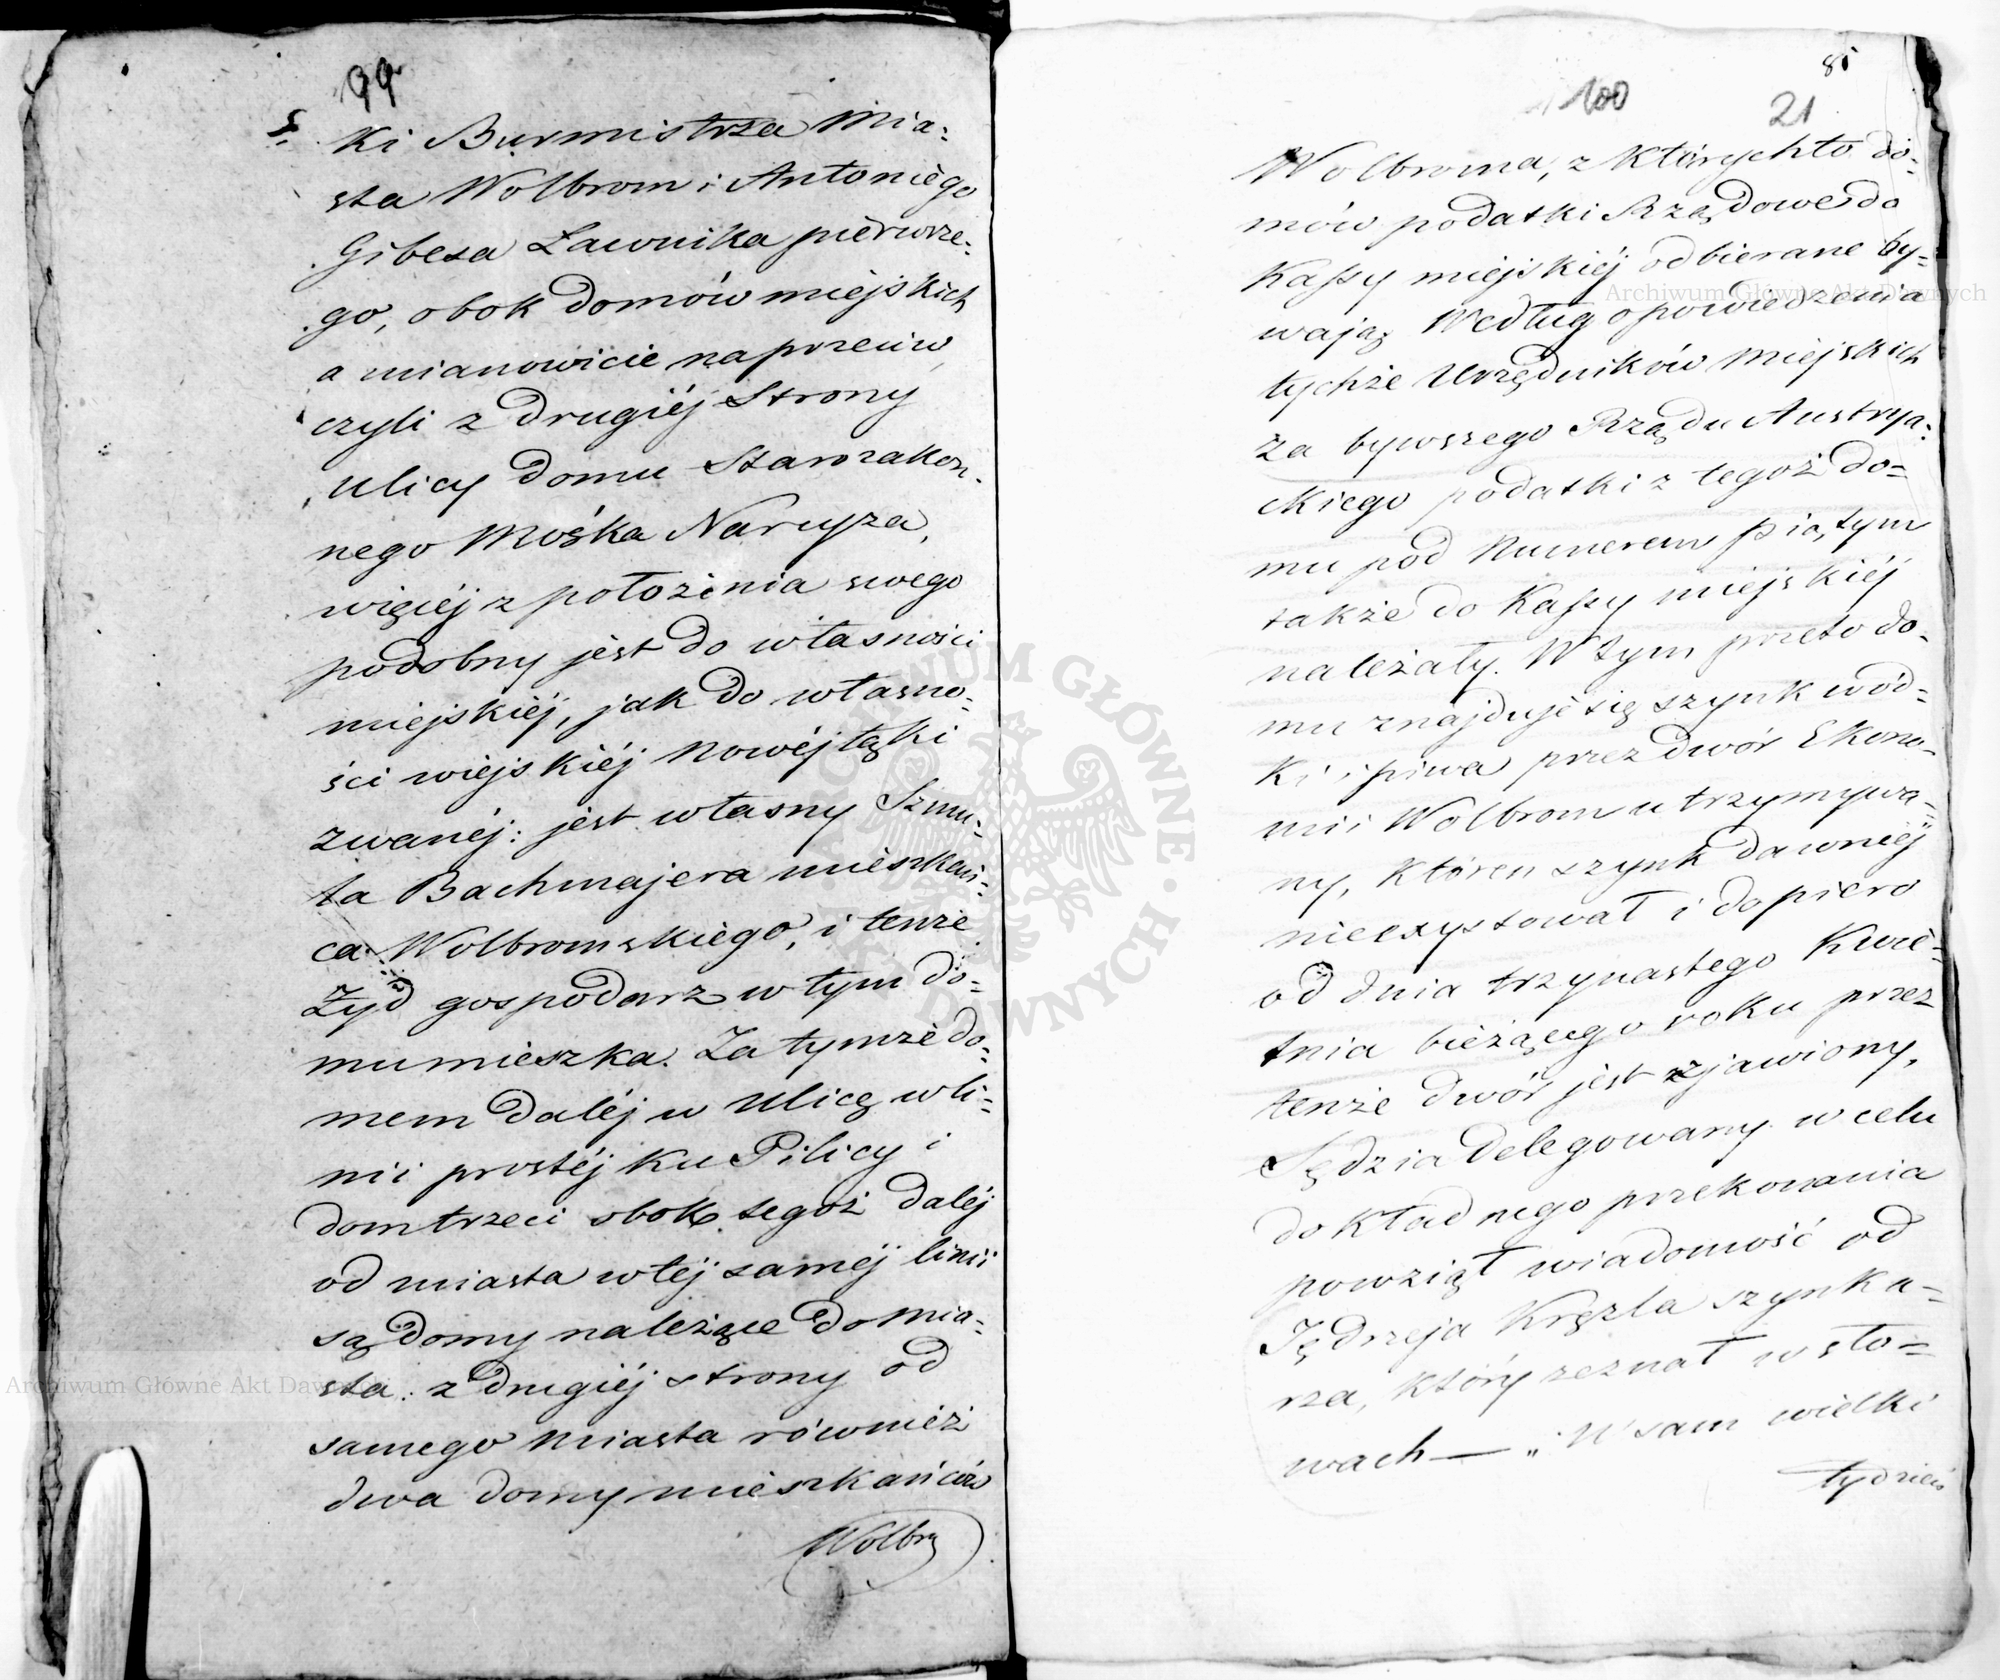 99
ki Burmistrza Mia=
sta Wolbrom i Antoniego
Gibesa Ławnika pierwsze=
go, obok domów miejskich
a mianowicie naprzeciw,
czyli z drugiéj Strony
ulicy domu Starozakon=
nego Mośka Narcyza,
więcéj z położenia swego
podobny jest do własności
miejskiéj, jak do własno=
ści wiejskiéj Nowéj łąki
zwanéj: jest własny Szmu=
la Bachmajera mieszkań=
ca Wolbromskiego, i tenże
Żyd gospodarz w tym do=
mu mieszka. Za tymże do=
mem daléj w ulicę w li=
nii prostéj ku Pilicy i
dom trzeci obok tegoż daléj
od miasta w téj saméj linii
są domy należące do Mia=
sta: z drugiéj strony od
samego Miasta również
dwa domy mieszkańców
Wolbro
85
100
21
Wolbroma, z których to do=
mów podatki Rządowe do
Kassy miejskiéj odbierane by=
wają Według opowiedzenia
tychże Urzędników Miejskich
za bywszego Rządu Austrya=
ckiego podatki z tegoż do=
mu pod Numerem piątym
także do Kassy miejskiéj
należały. W tym przeto do=
mu znajduje się szynk wód=
ki i piwa przez dwór Ekono=
mii Wolbrom utrzymywa=
ny, któren szynk dawniéj
nieexystował i dopiero
od dnia trzynastego Kwie=
tnia bieżącego roku przez
tenże dwór jest zjawiony,
Sędzia Delegowany w celu
dokładnego przekonania
powziął wiadomość od
Jędrzeja Kręzla szynka=
rza, który zeznał w sło=
wach — „W sam wielki
tydzień
Archiwum Główne Akt Dawnych
Archiwum Główne Akt Dawnych
ARCHIWUM GŁÓWNE AKT DAWNYCH